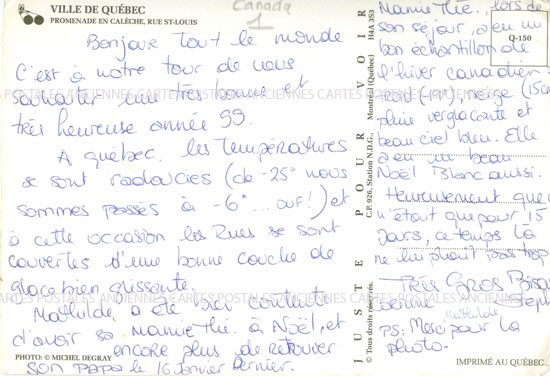 VILLE DE QUÉBEC
PROMENADE EN CALÈCHE, RUE ST-LOUIS
Canada
1
Bonjour tout le monde
C'est à notre tour de vous
souhaiter une très bonne et
très heureuse année 99.
A québec, les températures
se sont radoucies (de -25° nous
sommes passés à -6°... ouf!) et
à cette occasion les Rues se sont
couvertes d'une bonne couche de
glace bien glissante.
Mathilde a été bien contente
d'avoir sa Mamie Thé. à Noël, et
encore plus de retrouver
son papa le 16 janvier dernier.
PHOTO: © MICHEL DEGRAY
JUSTE POUR VOIR
© Tous droits réservés.
C.P. 926, Station N.D.G., Montréal (Québec) H4A 3S3
Q-150
Mamie Thé., lors de
son séjour, a eu un
bon échantillon de
l'hiver canadien:
froid, neige (15cm)
pluie verglaçante et
beau ciel bleu. Elle
a eu un beau
Noël Blanc aussi.
Heureusement que
n'était que pour 15
jours, ce temps là
ne lui plaît pas trop
Très Gros Bisous
Steph
Mathilde
PS: Merci pour la
photo.
IMPRIMÉ AU QUÉBEC
CARTES POSTALES ANCIENNES